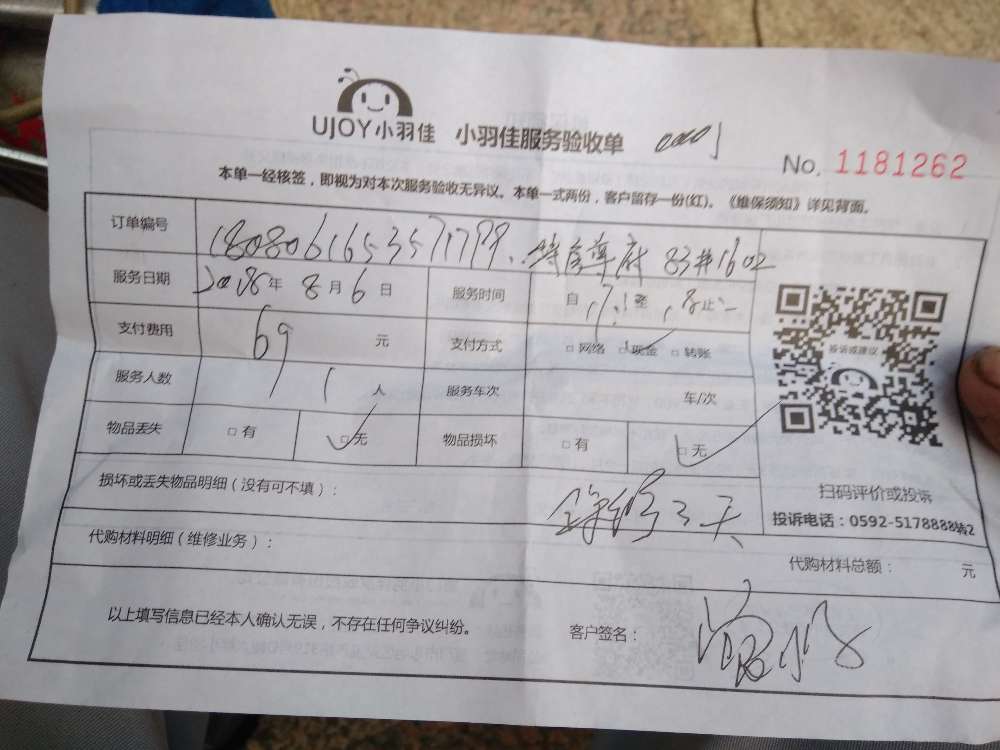 UJOY小羽佳 小羽佳服务验收单
No. 1181262
本单一经核签，即视为对本次服务验收无异议。本单一式两份，客户留存一份(红)。《维保须知》详见背面。
订单编号 83#1602
服务日期 2018年 8月6日 服务时间 自 至 止
支付费用 69 元 支付方式 □网络 □现金 □转账
服务人数 1 人 服务车次 车/次
物品丢失 □有 □无 物品损坏 □有 □无
投诉或建议
扫码评价或投诉
投诉电话：0592-5178888转2
损坏或丢失物品明细（没有可不填）： 3天
代购材料明细（维修业务）： 代购材料总额： 元
以上填写信息已经本人确认无误，不存在任何争议纠纷。 客户签名：